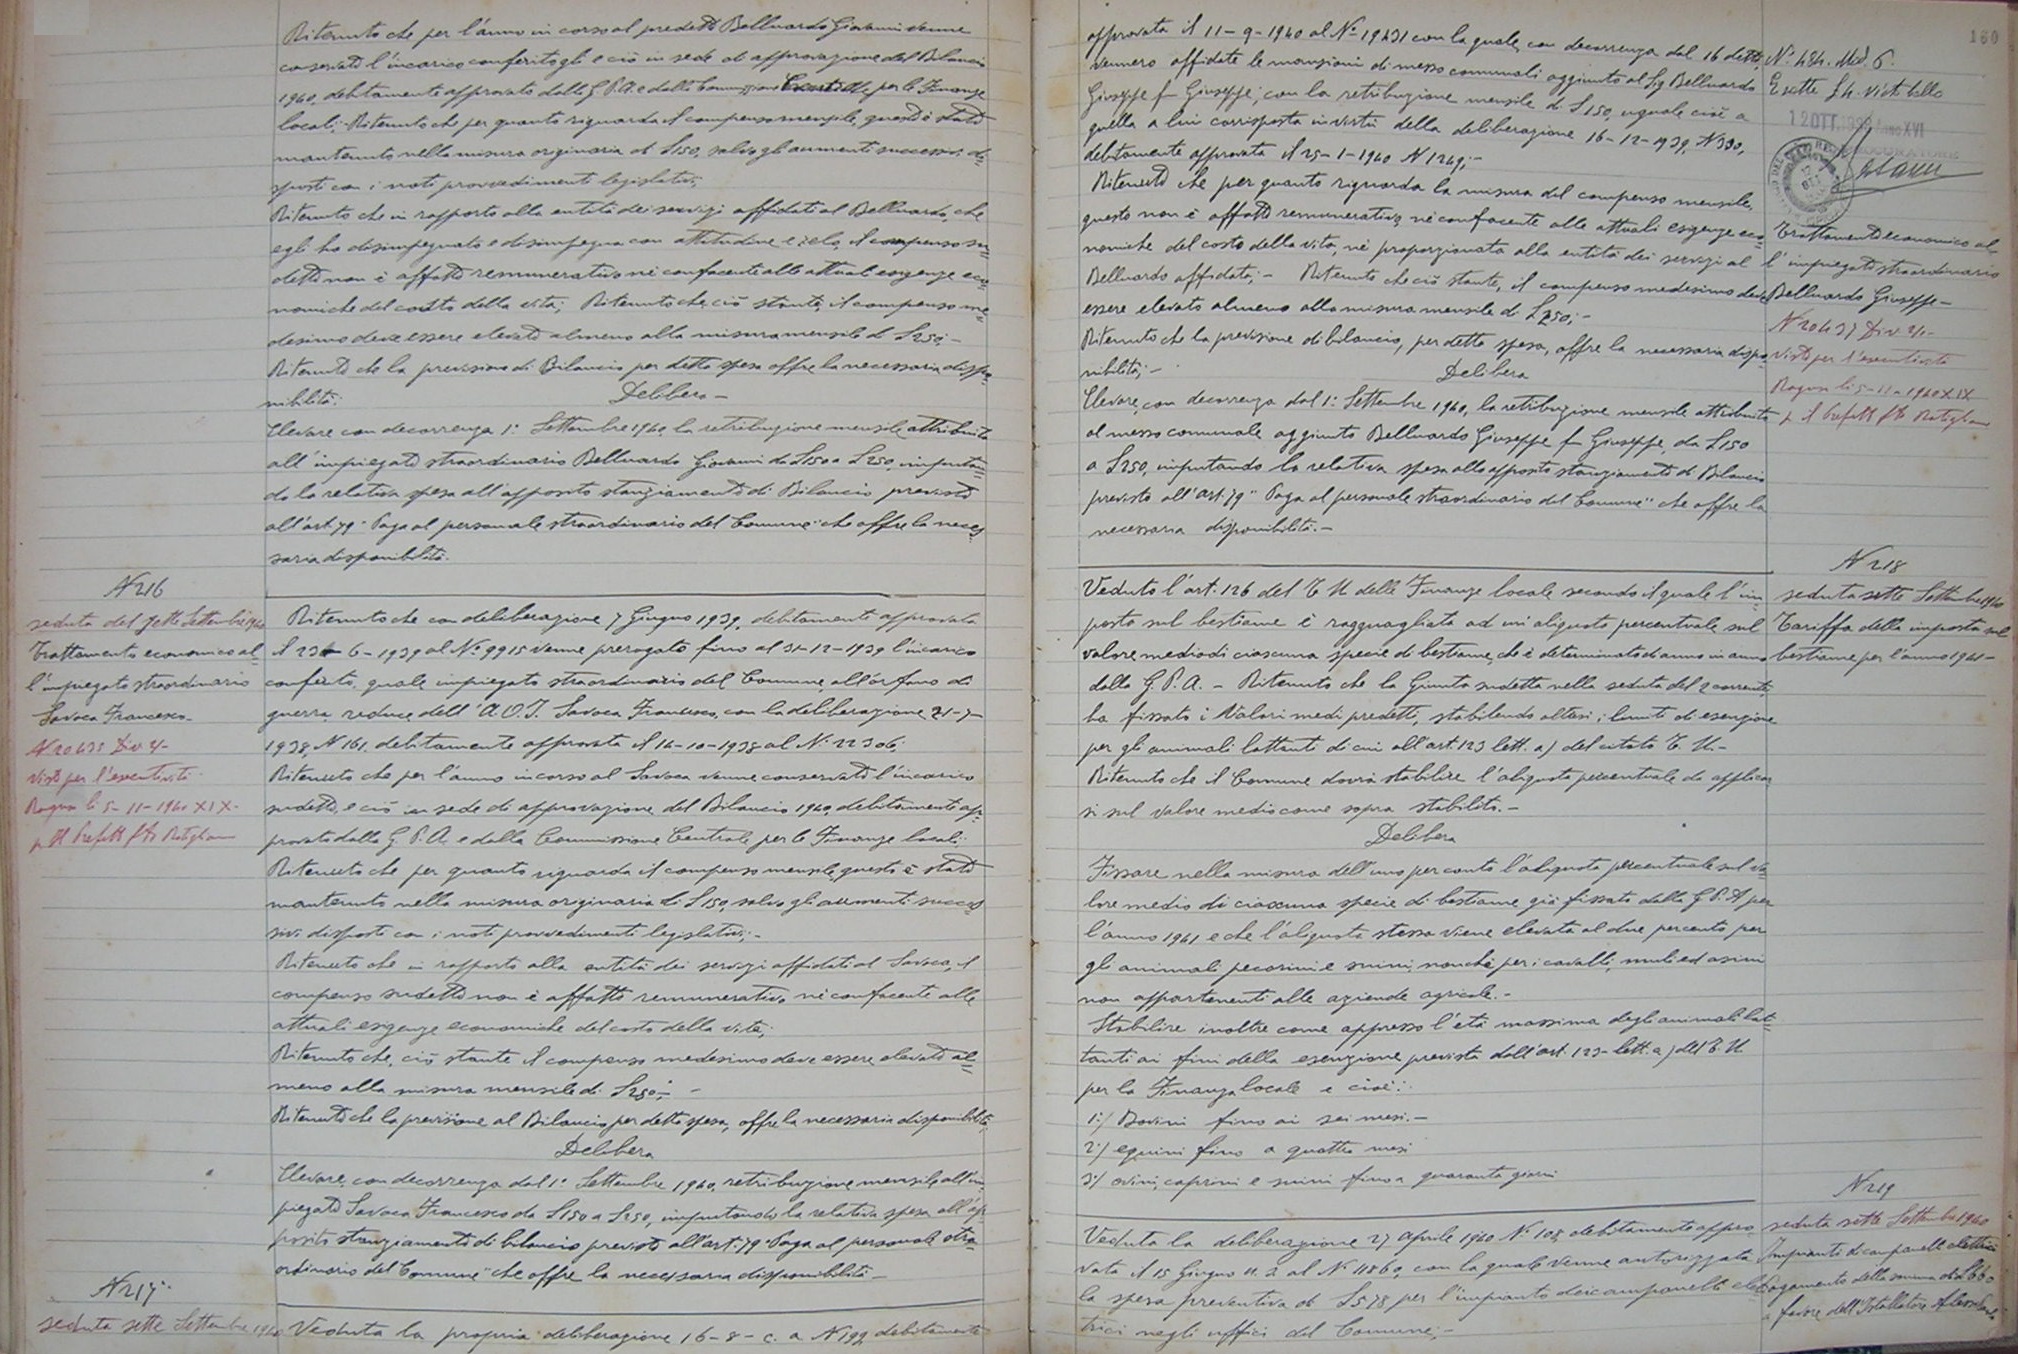 Ritenuto che per l'anno in corso al predetto Belluardo Giovanni venne
conservato l'incarico conferitogli e ciò in sede di approvazione del Bilancio
1940, debitamente approvato dalla G.P.A. e dalla Commissione Centrale per le Finanze
locali; Ritenuto che per quanto riguarda il compenso mensile, questo è stato
mantenuto nella misura originaria di £150, salvo gli aumenti successivi di=
sposti con i noti provvedimenti legislativi;
Ritenuto che in rapporto alla entità dei servizi affidati al Belluardo, che
egli ha disimpegnato e disimpegna con attitudine e zelo, il compenso su=
detto non è affatto remunerativo nè confacente alle attuali esigenze eco=
nomiche del costo della vita; Ritenuto che, ciò stante, il compenso me=
desimo deve essere elevato almeno alla misura mensile di £250;-
Ritenuto che la previsione di Bilancio per detta spesa offre la necessaria dispo=
nibilità;
Delibera-
Elevare con decorrenza 1° Settembre 1940, la retribuzione mensile attribuita
all'impiegato straordinario Belluardo Giovanni da £150 a £250, imputan=
do la relativa spesa all'apposito stanziamento di Bilancio previsto
all'art. 79 "Paga al personale straordinario del Comune" che offre la neces
saria disponibilità.
N 216
seduta del sette Settembre 1940
Trattamento economico al=
l'impiegato straordinario
Savoca Francesco-
N 20435 Div 4/-
Visto per l'esecutività
Ragusa li 5-11-1940 XIX-
p Il Prefetto fto
Ritenuto che con deliberazione 7 Giugno 1939, debitamente approvata
il 23-6-1939 al N° 9915 venne prorogato fino al 31-12-1939 l'incarico
conferito, quale impiegato straordinario del Comune, all'orfano di
guerra reduce dell'A.O.I. Savoca Francesco, con la deliberazione 21-7-
1938, N 161, debitamente approvata il 14-10-1938 al N° 22306;
Ritenuto che per l'anno in corso al Savoca venne conservato l'incarico
sudetto, e ciò in sede di approvazione del Bilancio 1940, debitamente ap=
provato dalla G.P.A. e dalla Commissione Centrale per le Finanze locali;
Ritenuto che per quanto riguarda il compenso mensile, questo è stato
mantenuto nella misura originaria di £150, salvo gli aumenti succes
sivi disposti con i noti provvedimenti legislativi;-
Ritenuto che in rapporto alla entità dei servizi affidati al Savoca, il
compenso sudetto non è affatto remunerativo nè confacente alle
attuali esigenze economiche del costo della vita;
Ritenuto che, ciò stante il compenso medesimo deve essere elevato al=
meno alla misura mensile di £250;-
Ritenuto che la previsione al Bilancio per detta spesa, offre la necessaria disponibilità;
Delibera
Elevare, con decorrenza dal 1° Settembre 1940, retribuzione mensile all'im
piegato Savoca Francesco da £150 a £250, imputando la relativa spesa all'ap
posito stanziamento di bilancio previsto all'art. 79 "Paga al personale stra=
ordinario del Comune" che offre la necessaria disponibilità-
N 217-
seduta sette Settembre 1940
Veduta la propria deliberazione 16-8-c.a N 199 debitamente
160
approvata il 11-9-1940 al N° 19431 con la quale, con decorrenza dal 16 detto,
vennero affidate le mansioni di messo comunali aggiunto al Sig Belluardo
Giuseppe fu Giuseppe, con la retribuzione mensile di £150, uguale cioè a
quella a lui corrisposta in virtù della deliberazione 16-12-1939, N 330,
debitamente approvata il 25-1-1940 N 1249;-
Ritenuto che per quanto riguarda la misura del compenso mensile,
questo non è affatto remunerativo, nè confacente alle attuali esigenze eco=
nomiche del costo della vita, nè proporzionata alla entità dei servizi al
Belluardo affidati;- Ritenuto che ciò stante, il compenso medesimo deve
essere elevato almeno alla misura mensile di £250;-
Ritenuto che la previsione di bilancio, per detta spesa, offre la necessaria dispo
nibilità;-
Delibera
Elevare, con decorrenza dal 1° Settembre 1940, la retribuzione mensile attribuita
al messo comunale aggiunto Belluardo Giuseppe fu Giuseppe, da £150
a £250, imputando la relativa spesa allo apposito stanziamento di Bilancio
previsto all'art. 79 "Paga al personale straordinario del Comune" che offre la
necessaria disponibilità.-
N°
Esatte £
12 OTT. Anno XVI
Trattamento economico al
l'impiegato straordinario
Belluardo Giuseppe-
N 20437 Div 4/-
Visto per l'esecutività
Ragusa li 5-11-1940 XIX
p Il Prefetto fto
N 218
seduta sette Settembre 1940
Tariffa della imposta sul
bestiame per l'anno 1941-
Veduto l'art. 126 del T.U. delle Finanze locale secondo il quale l'im
posta sul bestiame è ragguagliata ad un'aliquota percentuale sul
valore medio di ciascuna specie di bestiame, che è determinato di anno in anno
dalla G.P.A. - Ritenuto che la Giunta sudetta nella seduta del 2 corrente,
ha fissato i Valori medi predetti, stabilendo altresì i limiti di esenzione
per gli animali lattanti di cui all'art. 123 lett. a) del citato T.U.-
Ritenuto che il Comune dovrà stabilire l'aliquota percentuale da applicar
si sul valore medio come sopra stabilito.-
Delibera
Fissare nella misura dell'uno per cento l'aliquota percentuale sul va=
lore medio di ciascuna specie di bestiame già fissato dalla G.P.A per
l'anno 1941 e che l'aliquota stessa viene elevata al due percento per
gli animali pecorini e suini, nonchè per i cavalli, muli ed asini
non appartenenti alle aziende agricole.-
Stabilire inoltre come appresso l'età massima degli animali lat=
tanti ai fini della esenzione prevista dall'art. 123-lett. a) del T.U
per la Finanza locale e cioè:
1°) Bovini fino ai sei mesi.-
2°) equini fino a quattro mesi
3°) ovini, caprini e suini fino a quaranta giorni
N 219
seduta sette Settembre 1940
Impianti di campanelli elettrici
Pagamento della somma di £660
a favore dell'Istallatore
Veduta la deliberazione 27 aprile 1940 N° 108 debitamente appro
vata il 15 Giugno u.s. al N° 11860, con la quale venne autorizzata
la spesa preventiva di £578 per l'impianto dei campanelli elet
trici negli uffici del Comune;-